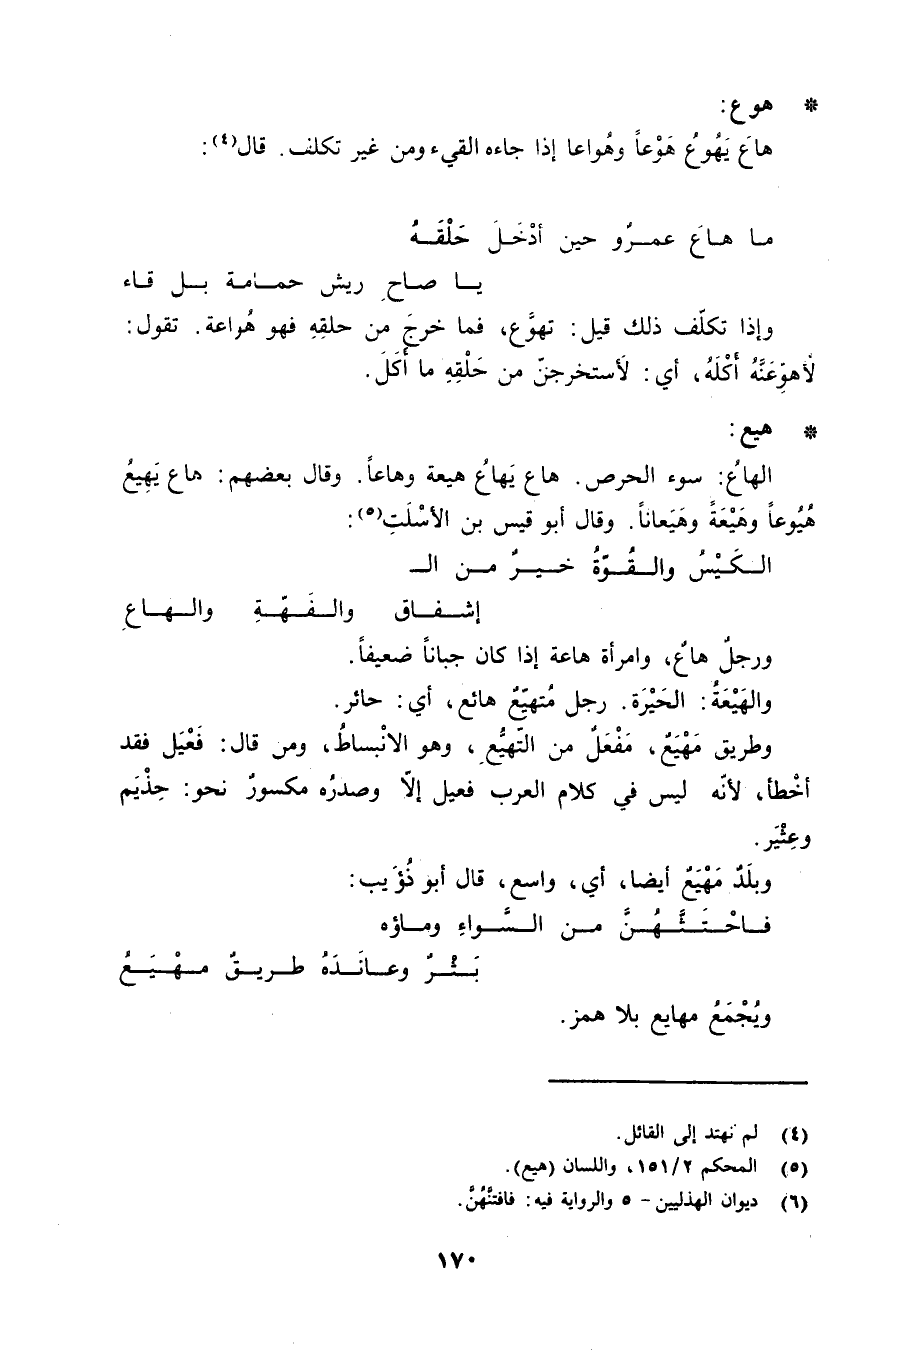 * هوع:
هاعَ يَهُوعُ هَوْعاً وهُواعا إذا جاءه القيء ومن غير تكلف. قال(٤):
ما هاعَ عمرُو حين أدْخَلَ حَلْقَهُ
يا صاحِ ريش حمامة بل قاء
وإذا تكلّف ذلك قيل: تهوَّع، فما خرجَ من حلقِهِ فهو هُواعة. تقول:
لأهوِّعَنَّهُ أَكْلَهُ، أي: لَأستخرجنّ من حَلْقِهِ ما أَكَلَ.
* هيع:
الهاعُ: سوء الحرص. هاع يَهاعُ هيعة وهاعاً. وقال بعضهم: هاع يَهِيعُ
هُيُوعاً وهَيْعَةً وهَيَعاناً. وقال أبو قيس بن الأسْلَتِ(٥):
الكَيْسُ والقُوّةُ خيرٌ من الـ
إشفاق والفَهّةِ والهاعِ
ورجلٌ هاعٌ، وامرأة هاعة إذا كان جباناً ضعيفاً.
والهَيْعَةُ: الحَيْرَة. رجل مُتهيّعٌ هائع، أي: حائر.
وطريق مَهْيَعٌ، مَفْعَلٌ من التّهيُّعِ، وهو الانْبساطُ، ومن قال: فَعْيَل فقد
أخْطأ، لأنّه ليس في كلام العرب فعيل إلّا وصدرُه مكسورٌ نحو: حِذْيَم
وعِثْيَر.
وبلَدٌ مَهْيَعٌ أيضا، أي، واسع، قال أبو ذُؤَيب:
فاحْتَثَّهُنَّ من السَّواءِ وماؤه
بَثْرٌ وعانَدَهُ طريقٌ مهْيَعُ
ويُجْمَعُ مهايع بلا همز.
(٤) لم نهتد إلى القائل.
(٥) المحكم ١٥١/٢، واللسان (هيع).
(٦) ديوان الهذليين - ٥ والرواية فيه: فافتنَّهُنَّ.
١٧٠